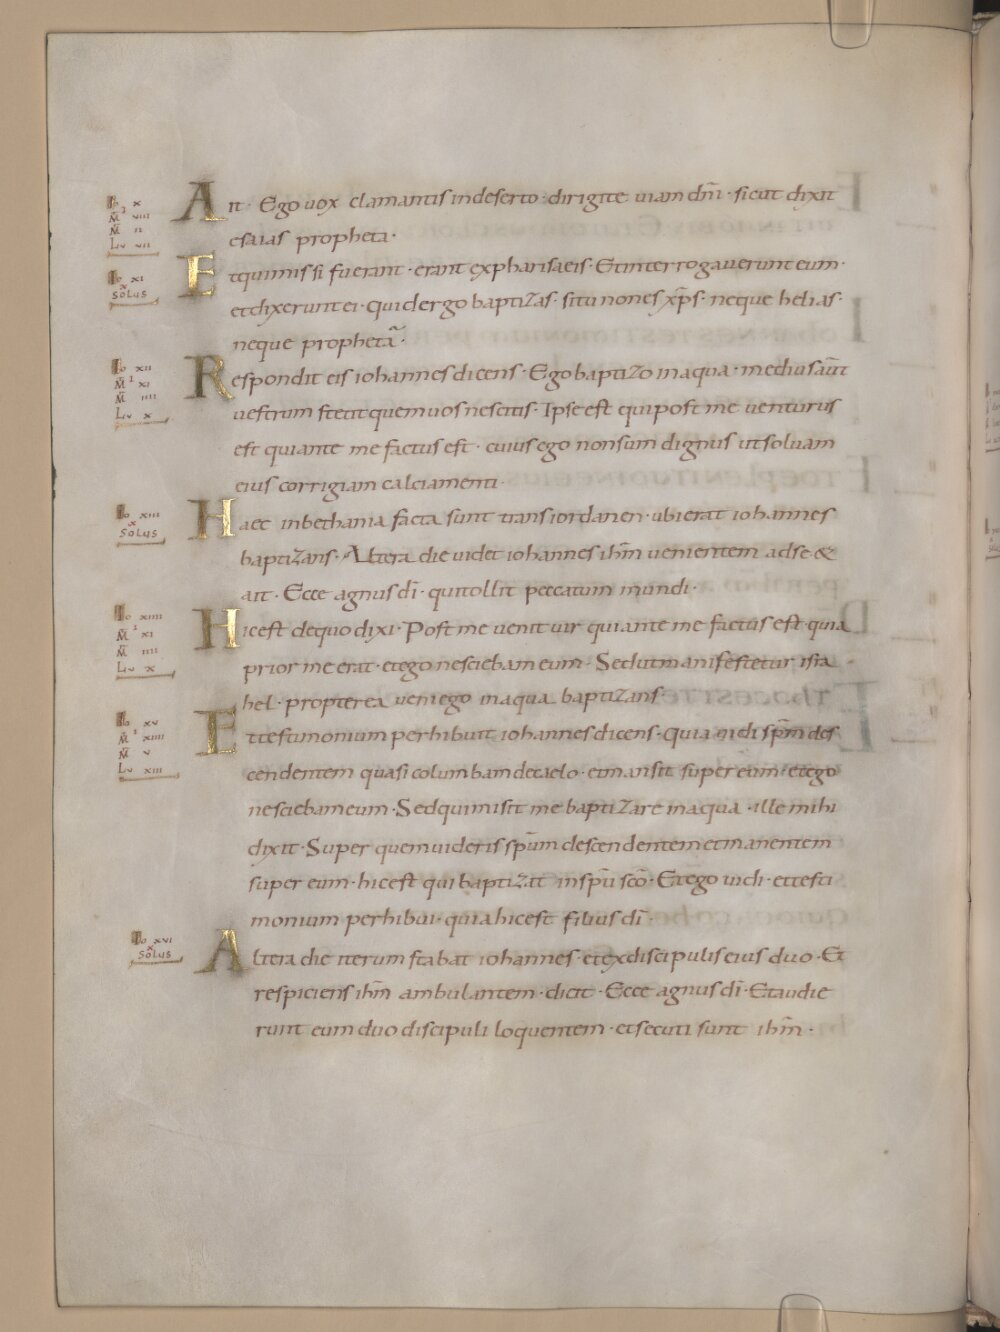 Io x
M̄ ͛ viii
M̄ ii
Lv vii
Ait · Ego uox clamantis in deserto · dirigite uiam dn̄i · sicut dixit
esaias propheta ·
Io xi
x
SOLUS
Et qui missi fuerant · erant ex pharisaeis · Et interrogauerunt eum ·
et dixerunt ei · quid ergo baptizas · si tu non es xp̄s · neque helias ·
neque propheta ·
Io xii
M̄ xi
M̄ iiii
Lv x
Respondit eis iohannes dicens · Ego baptizo in aqua · medius aūt
uestrum stetit quem uos nescitis · Ipse est qui post me uenturus
est qui ante me factus est · cuius ego non sum dignus ut soluam
eius corrigiam calciamenti ·
Io xiii
x
SOLUS
Haec in bethania facta sunt trans iordanen · ubi erat iohannes
baptizans · Altera die uidet iohannes ih̄m uenientem ad se &
ait · Ecce agnus dī · qui tollit peccatum mundi ·
Io xiiii
M̄ xi
M̄ iiii
Lv x
Hic est de quo dixi · Post me uenit uir qui ante me factus est · quia
prior me erat · et ego nesciebam eum · Sed ut manifestetur isra
hel · propterea ueni ego in aqua baptizans
Io xv
M̄ xiiii
M̄ v
Lv xiii
Et testimonium perhibuit iohannes dicens · Quia uidi sp̄m des
cendentem quasi columbam de caelo · et mansit super eum · et ego
nesciebam eum · Sed qui misit me baptizare in aqua · ille mihi
dixit · Super quem uideris spūm descendentem et manentem
super eum · hic est qui baptizat in spū scō · Et ego uidi · et testi
monium perhibui · quia hic est filius dī ·
Io xvi
x
SOLUS
Altera die iterum stabat iohannes · et ex discipulis eius duo · Et
respiciens ih̄m ambulantem · dicit · Ecce agnus dī · Et audie
runt eum duo discipuli loquentem · et secuti sunt ih̄m ·